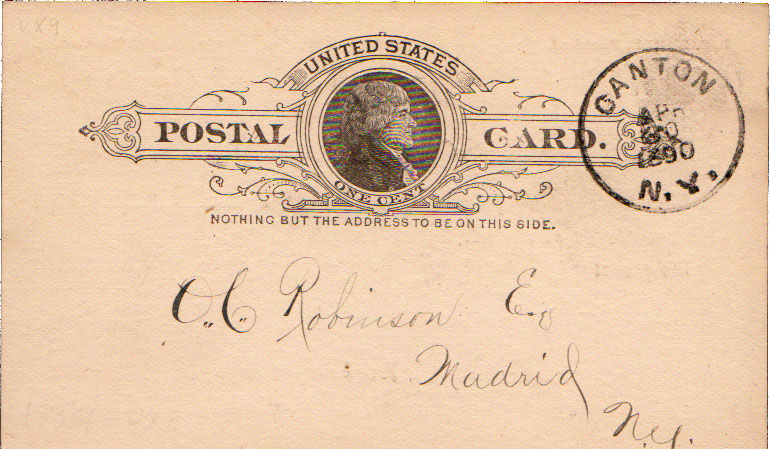 UX9
UNITED STATES
POSTAL CARD.
ONE CENT
NOTHING BUT THE ADDRESS TO BE ON THIS SIDE.
CANTON
APR
1890
N.Y.
O.C. Robinson Esq
Madrid
N.y.